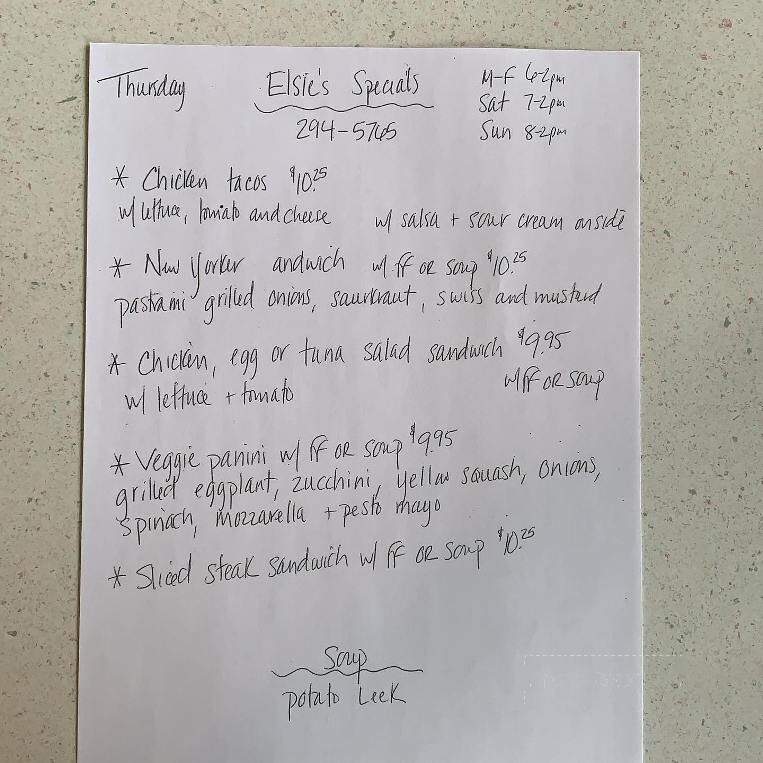 Thursday
Elsie's Specials
294-5765
M-F 6-2pm
Sat 7-2pm
Sun 8-2pm
* Chicken tacos $10.25
w/ lettuce, tomato and cheese w/ salsa + sour cream onside
* New Yorker andwich w/ ff OR soup $10.25
pastrami grilled onions, saurkraut, swiss and mustard
* Chicken, egg or tuna salad sandwich $9.95
w/ lettuce + tomato w/ ff OR soup
* Veggie panini w/ ff OR soup $9.95
grilled eggplant, zucchini, yellow squash, onions,
spinach, mozzarella + pesto mayo
* Sliced steak sandwich w/ ff OR soup $10.25
Soup
potato Leek